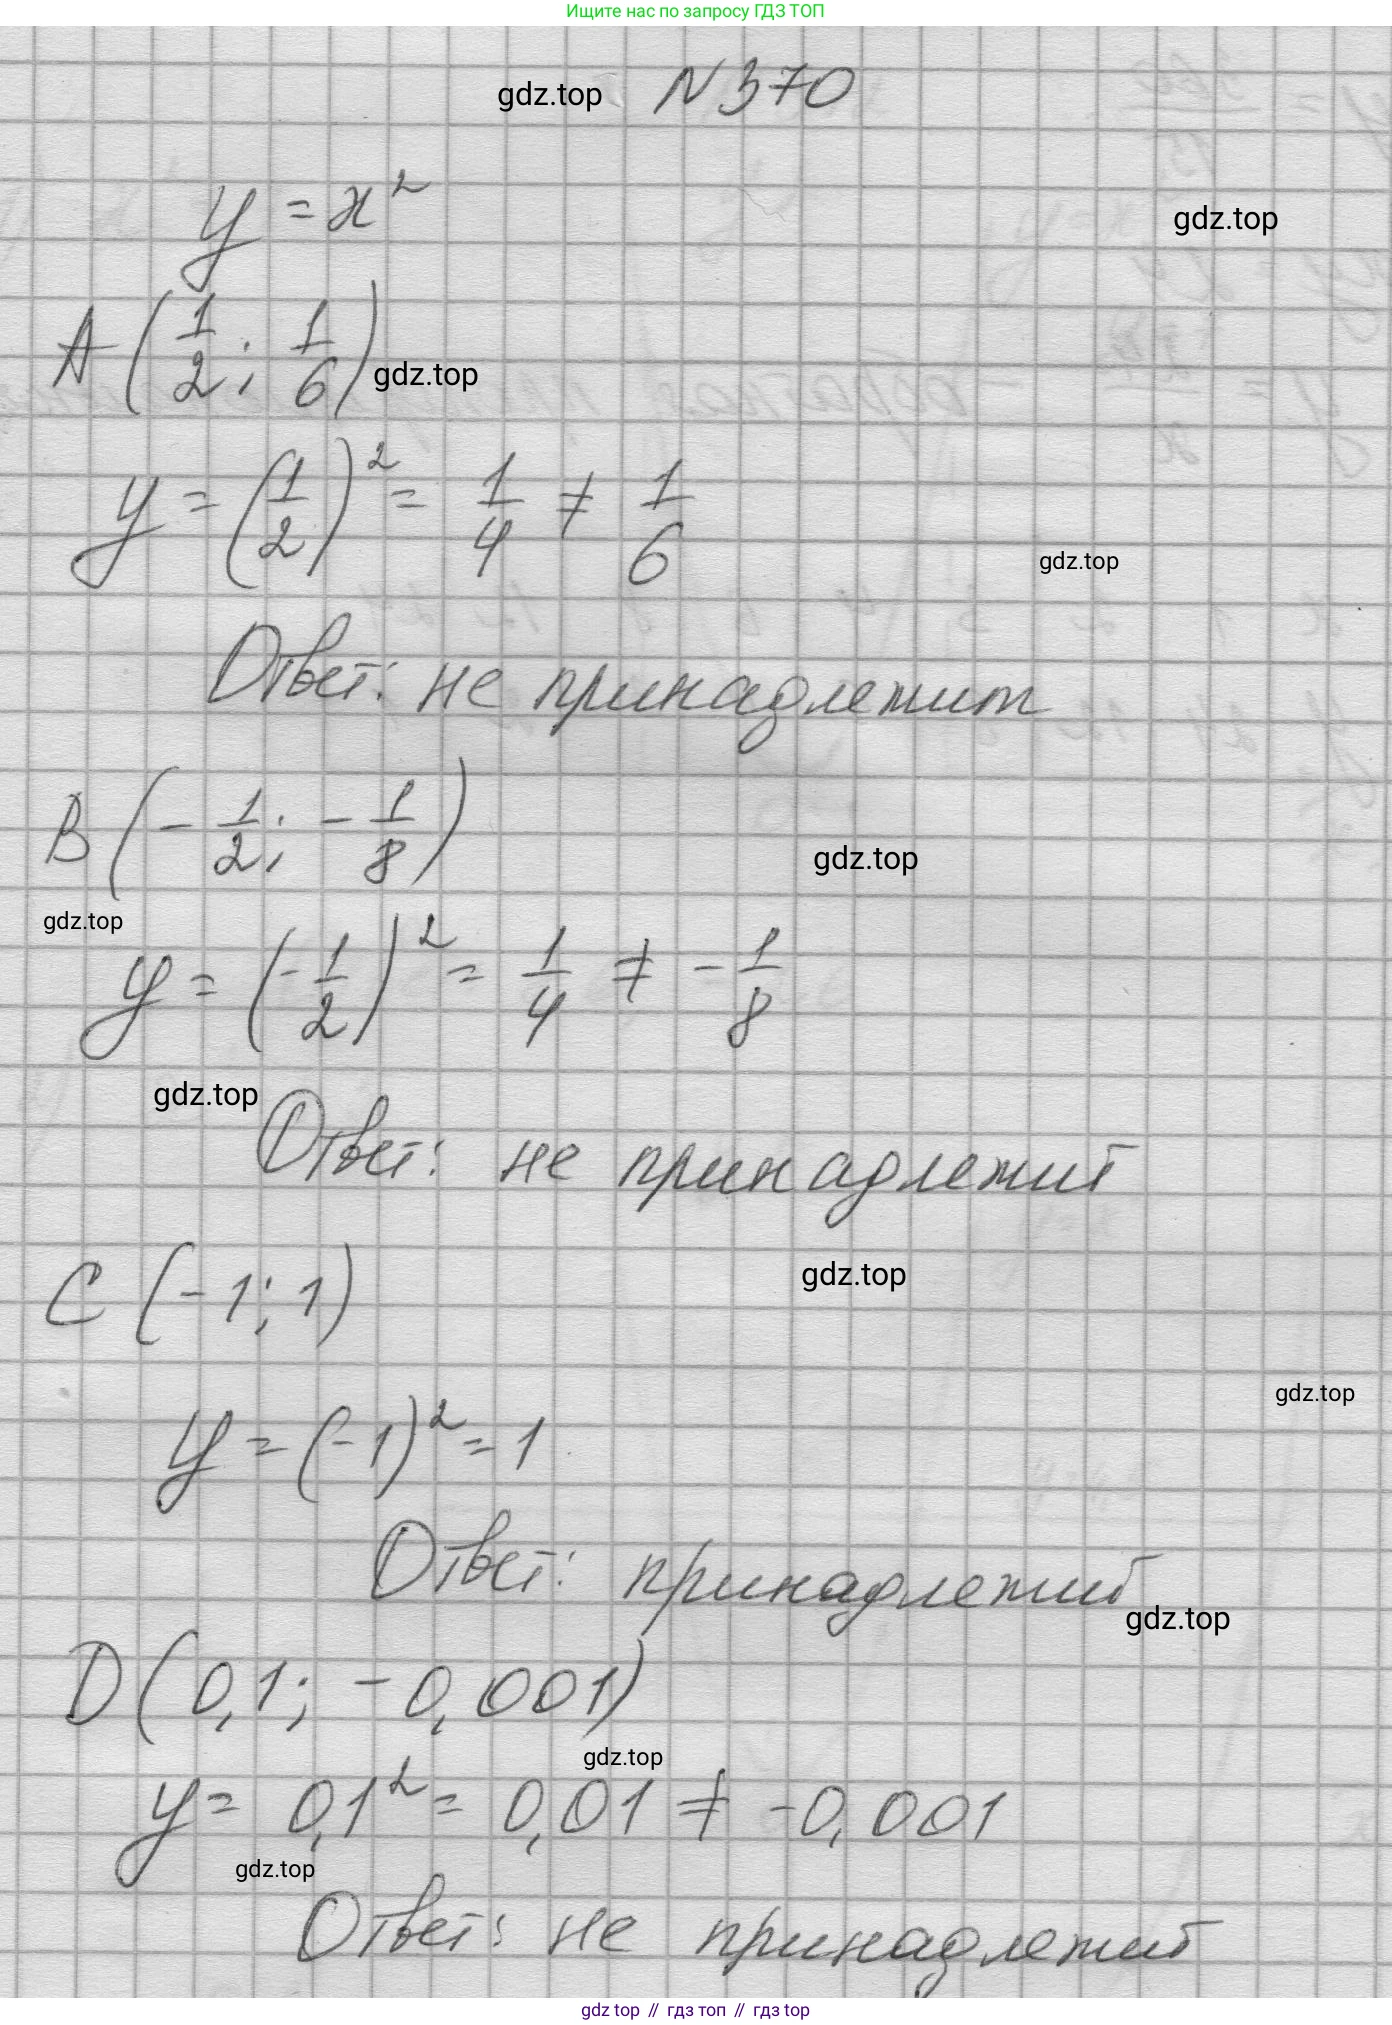 Ищите нас по запросу ГДЗ ТОП
gdz.top N 370
y = x²
gdz.top
A (1/2; 1/6)
gdz.top
y = (1/2)² = 1/4 ≠ 1/6
gdz.top
Ответ: не принадлежит
B (- 1/2; - 1/8)
gdz.top
gdz.top
y = (- 1/2)² = 1/4 ≠ - 1/8
gdz.top
Ответ: не принадлежит
gdz.top
C (-1; 1)
gdz.top
y = (-1)² = 1
Ответ: принадлежит
gdz.top
D (0,1; -0,001)
gdz.top
y = 0,1² = 0,01 ≠ -0,001
gdz.top
Ответ: не принадлежит
gdz top // гдз топ // гдз top